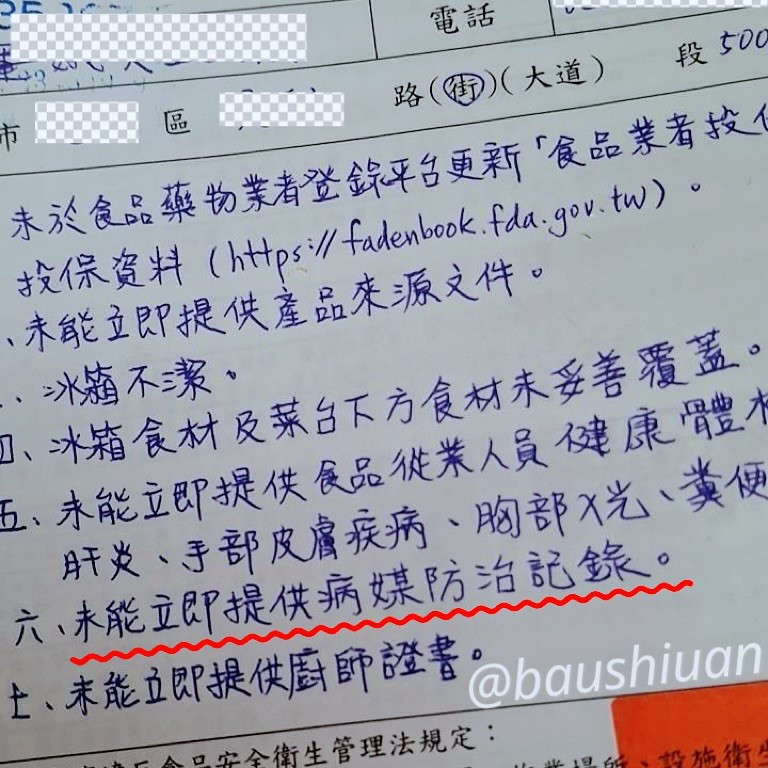 電話
市 區 路(街)(大道) 段 500
未於食品藥物業者登錄平台更新「食品業者投保
投保資料(https://fadenbook.fda.gov.tw)。
、未能立即提供產品來源文件。
、冰箱不潔。
四、冰箱食材及菜台下方食材未妥善覆蓋。
五、未能立即提供食品從業人員健康體檢
肝炎、手部皮膚疾病、胸部X光、糞便
六、未能立即提供病媒防治記錄。
七、未能立即提供廚師證書。
@baushiuan
違反食品安全衛生管理法規定：
作業場所、設施衛生